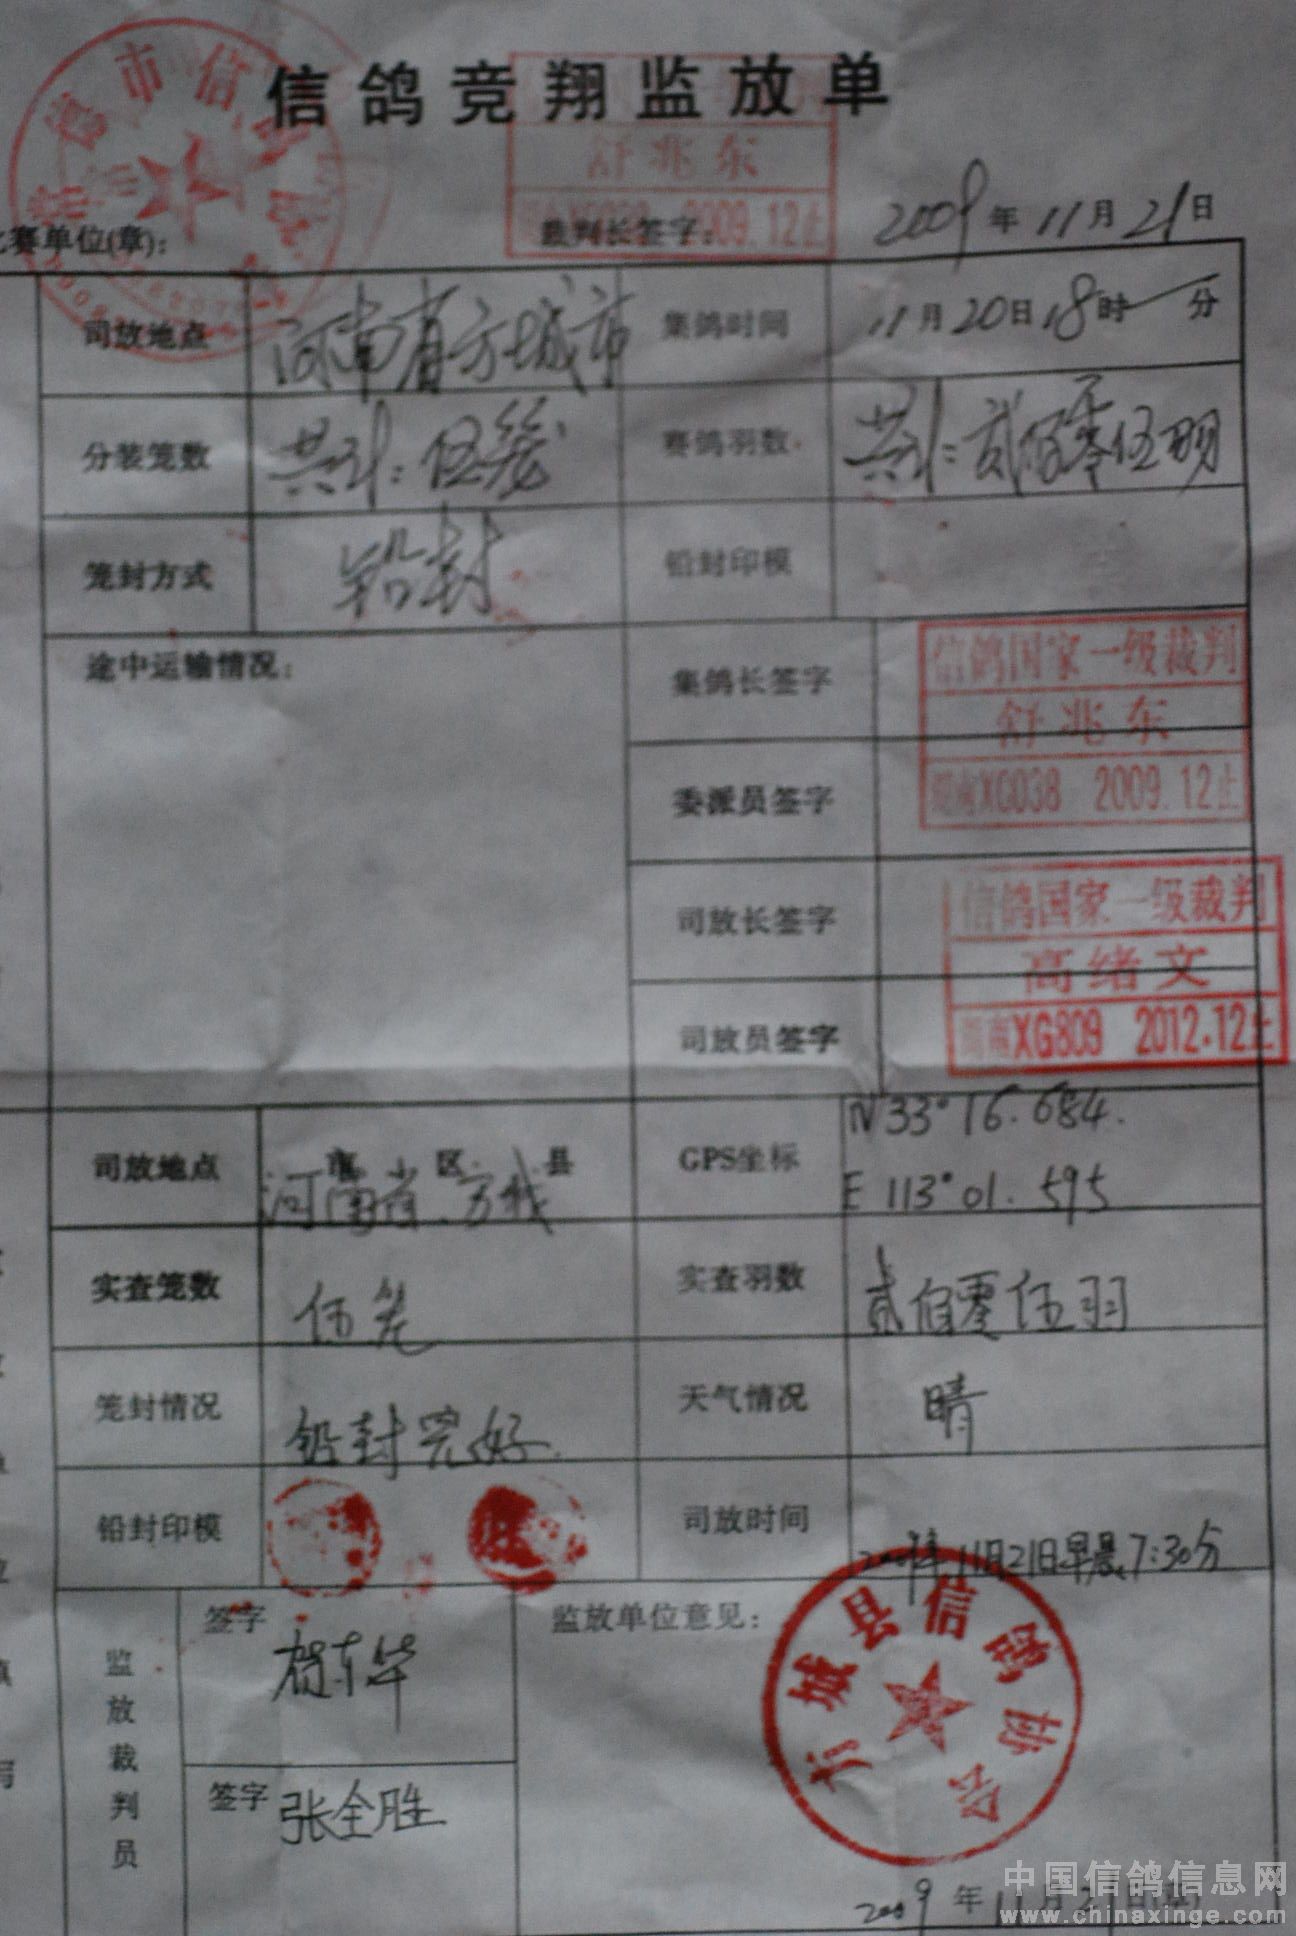 信鸽竞翔监放单
市信
舒兆东
2009.12止
赛单位(章):
裁判长签字:
2009年11月21日
司放地点 河南省方城市 集鸽时间 11月20日18时一分
分装笼数 共计:伍笼 赛鸽羽数 共计:贰佰零伍羽
笼封方式 铅封 铅封印模
途中运输情况:
集鸽长签字
信鸽国家一级裁判
舒兆东
湖南XG038 2009.12止
委派员签字
司放长签字
信鸽国家一级裁判
高绪文
湖南XG809 2012.12止
司放员签字
司放地点 河南省方城 市 区 县 GPS坐标 N33°16.684.
E 113°01.595
实查笼数 伍笼 实查羽数 贰佰零伍羽
笼封情况 铅封完好. 天气情况 晴
铅封印模 司放时间 2009年11月21日早晨7:30分
监放裁判员
签字
签字 张全胜
监放单位意见:
方城县信鸽协会
2009年11月21日
中国信鸽信息网
www.chinaxinge.com